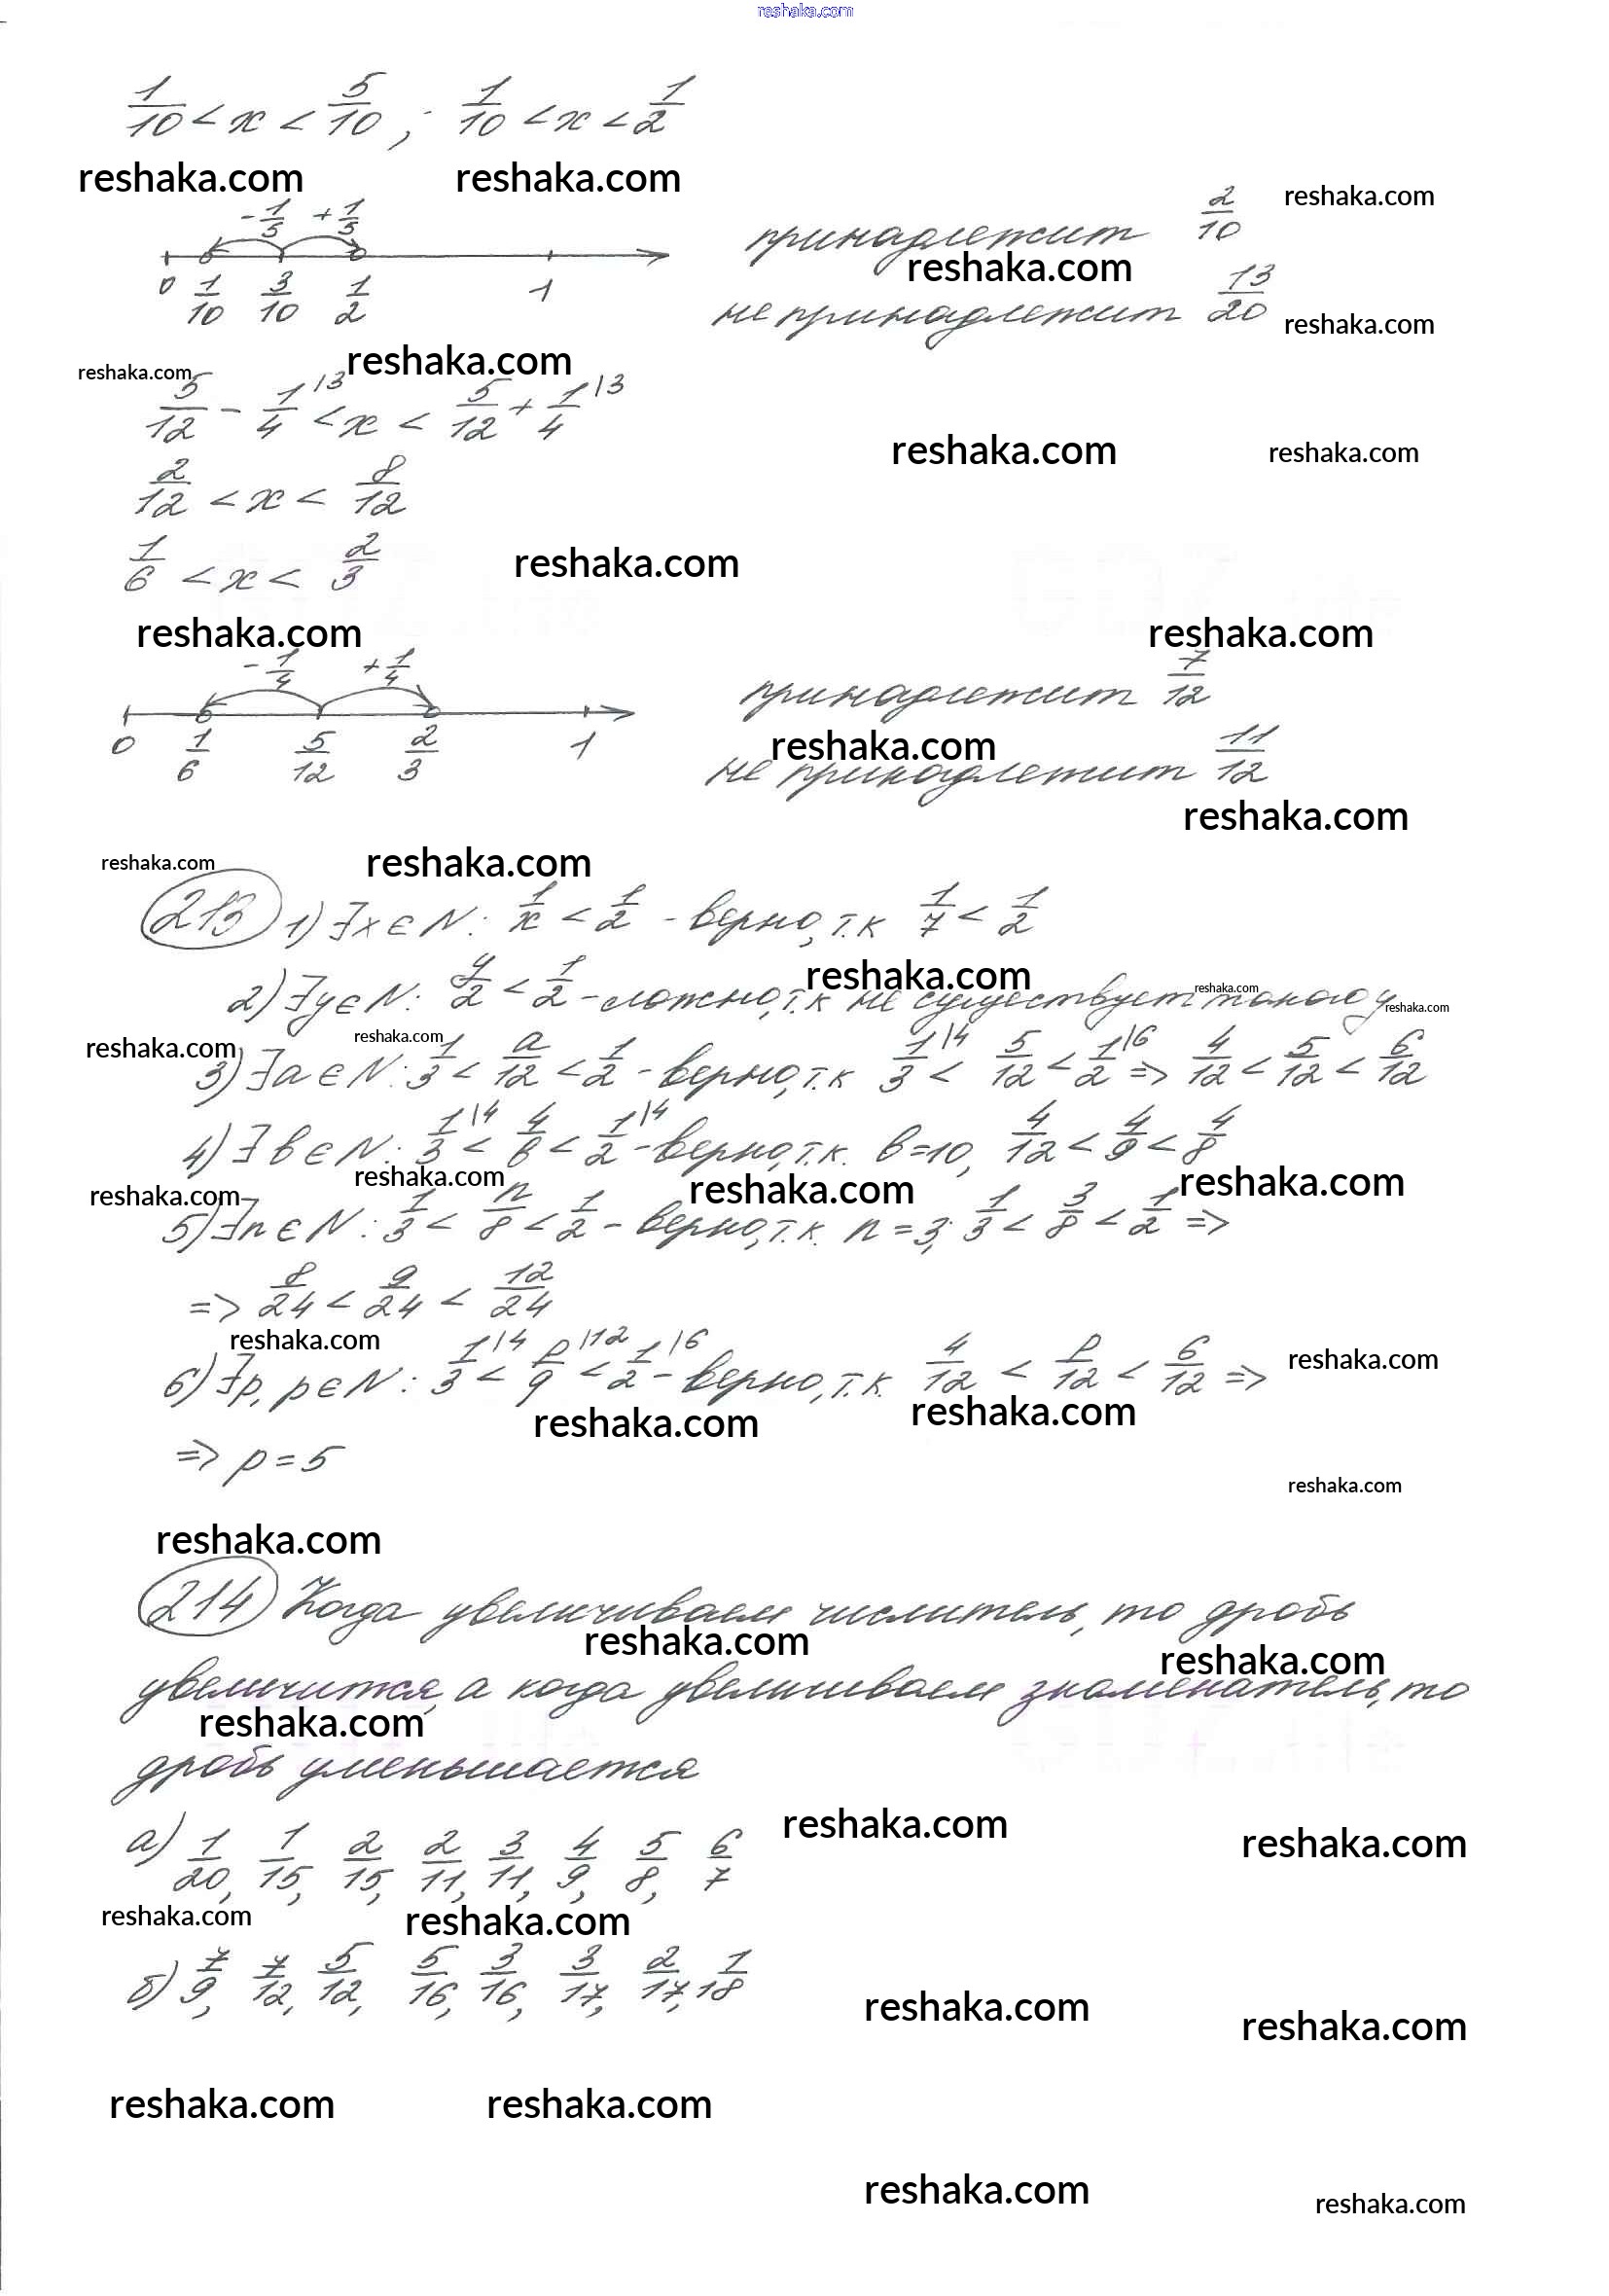 reshaka.com
1/10 < x < 5/10 ; 1/10 < x < 1/2
reshaka.com reshaka.com reshaka.com
-1/5 +1/5
принадлежит 2/10
reshaka.com
0 1/10 3/10 1/2 1
не принадлежит 13/20
reshaka.com
reshaka.com reshaka.com
5/12 - 1/4 |3 < x < 5/12 + 1/4 |3
reshaka.com reshaka.com
2/12 < x < 8/12
1/6 < x < 2/3
reshaka.com
reshaka.com reshaka.com
-1/4 +1/4
принадлежит 7/12
0 1/6 5/12 2/3 1
reshaka.com
не принадлежит 11/12
reshaka.com
reshaka.com reshaka.com
213 1) ∃x∈N: 1/x < 1/2 - верно, т.к 1/7 < 1/2
reshaka.com reshaka.com
2) ∃y∈N: y/2 < 1/2 - ложно, т.к не существует такого y
reshaka.com
reshaka.com reshaka.com
3) ∃a∈N: 1/3 < a/12 < 1/2 - верно, т.к 1/3 |4 < 5/12 < 1/2 |6 => 4/12 < 5/12 < 6/12
4) ∃в∈N: 1/3 |4 < 4/в < 1/2 |4 - верно, т.к. в=10, 4/12 < 4/9 < 4/8
reshaka.com reshaka.com reshaka.com reshaka.com
5) ∃n∈N: 1/3 < n/8 < 1/2 - верно, т.к. n=3; 1/3 < 3/8 < 1/2 =>
=> 8/24 < 9/24 < 12/24
reshaka.com reshaka.com
6) ∃p, p∈N: 1/3 |4 < p/9 |12 < 1/2 |6 - верно, т.к. 4/12 < p/12 < 6/12 =>
reshaka.com reshaka.com
=> p=5
reshaka.com
reshaka.com
214 Когда увеличиваем числитель, то дробь
reshaka.com reshaka.com
увеличится, а когда увеличиваем знаменатель, то
reshaka.com
дробь уменьшается
reshaka.com reshaka.com
а) 1/20, 1/15, 2/15, 2/11, 3/11, 4/9, 5/8, 6/7
reshaka.com reshaka.com
б) 7/9, 7/12, 5/12, 5/16, 3/16, 3/17, 2/17, 1/18
reshaka.com reshaka.com
reshaka.com reshaka.com
reshaka.com reshaka.com